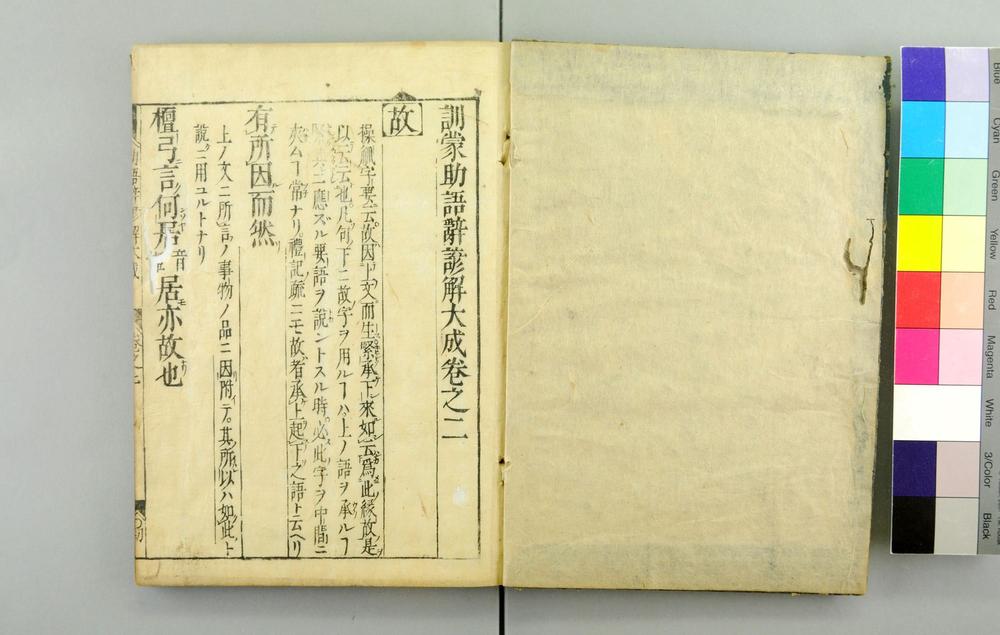 訓蒙助語辭諺解大成卷之二
故
操觚字要云故因上文而生緊承下來如云爲此緣故是
以云云也凡句下ニ故字ヲ用ルヿハ上ノ語ヲ承ルヿ
應ズル要語ヲ說ントスル時必此字ヲ中間ニ
夾ムヿ常ナリ禮記疏ニモ故者承上起下之語ト云ヘリ
有所因而然
上ノ文ニ所言ノ事物ノ品ニ因附テ其所以ハ如此ト
說ニ用ユルトナリ
檀弓言何居音 居亦故也
Blue
Cyan
Green
Yellow
Red
Magenta
White
3/Color
Black